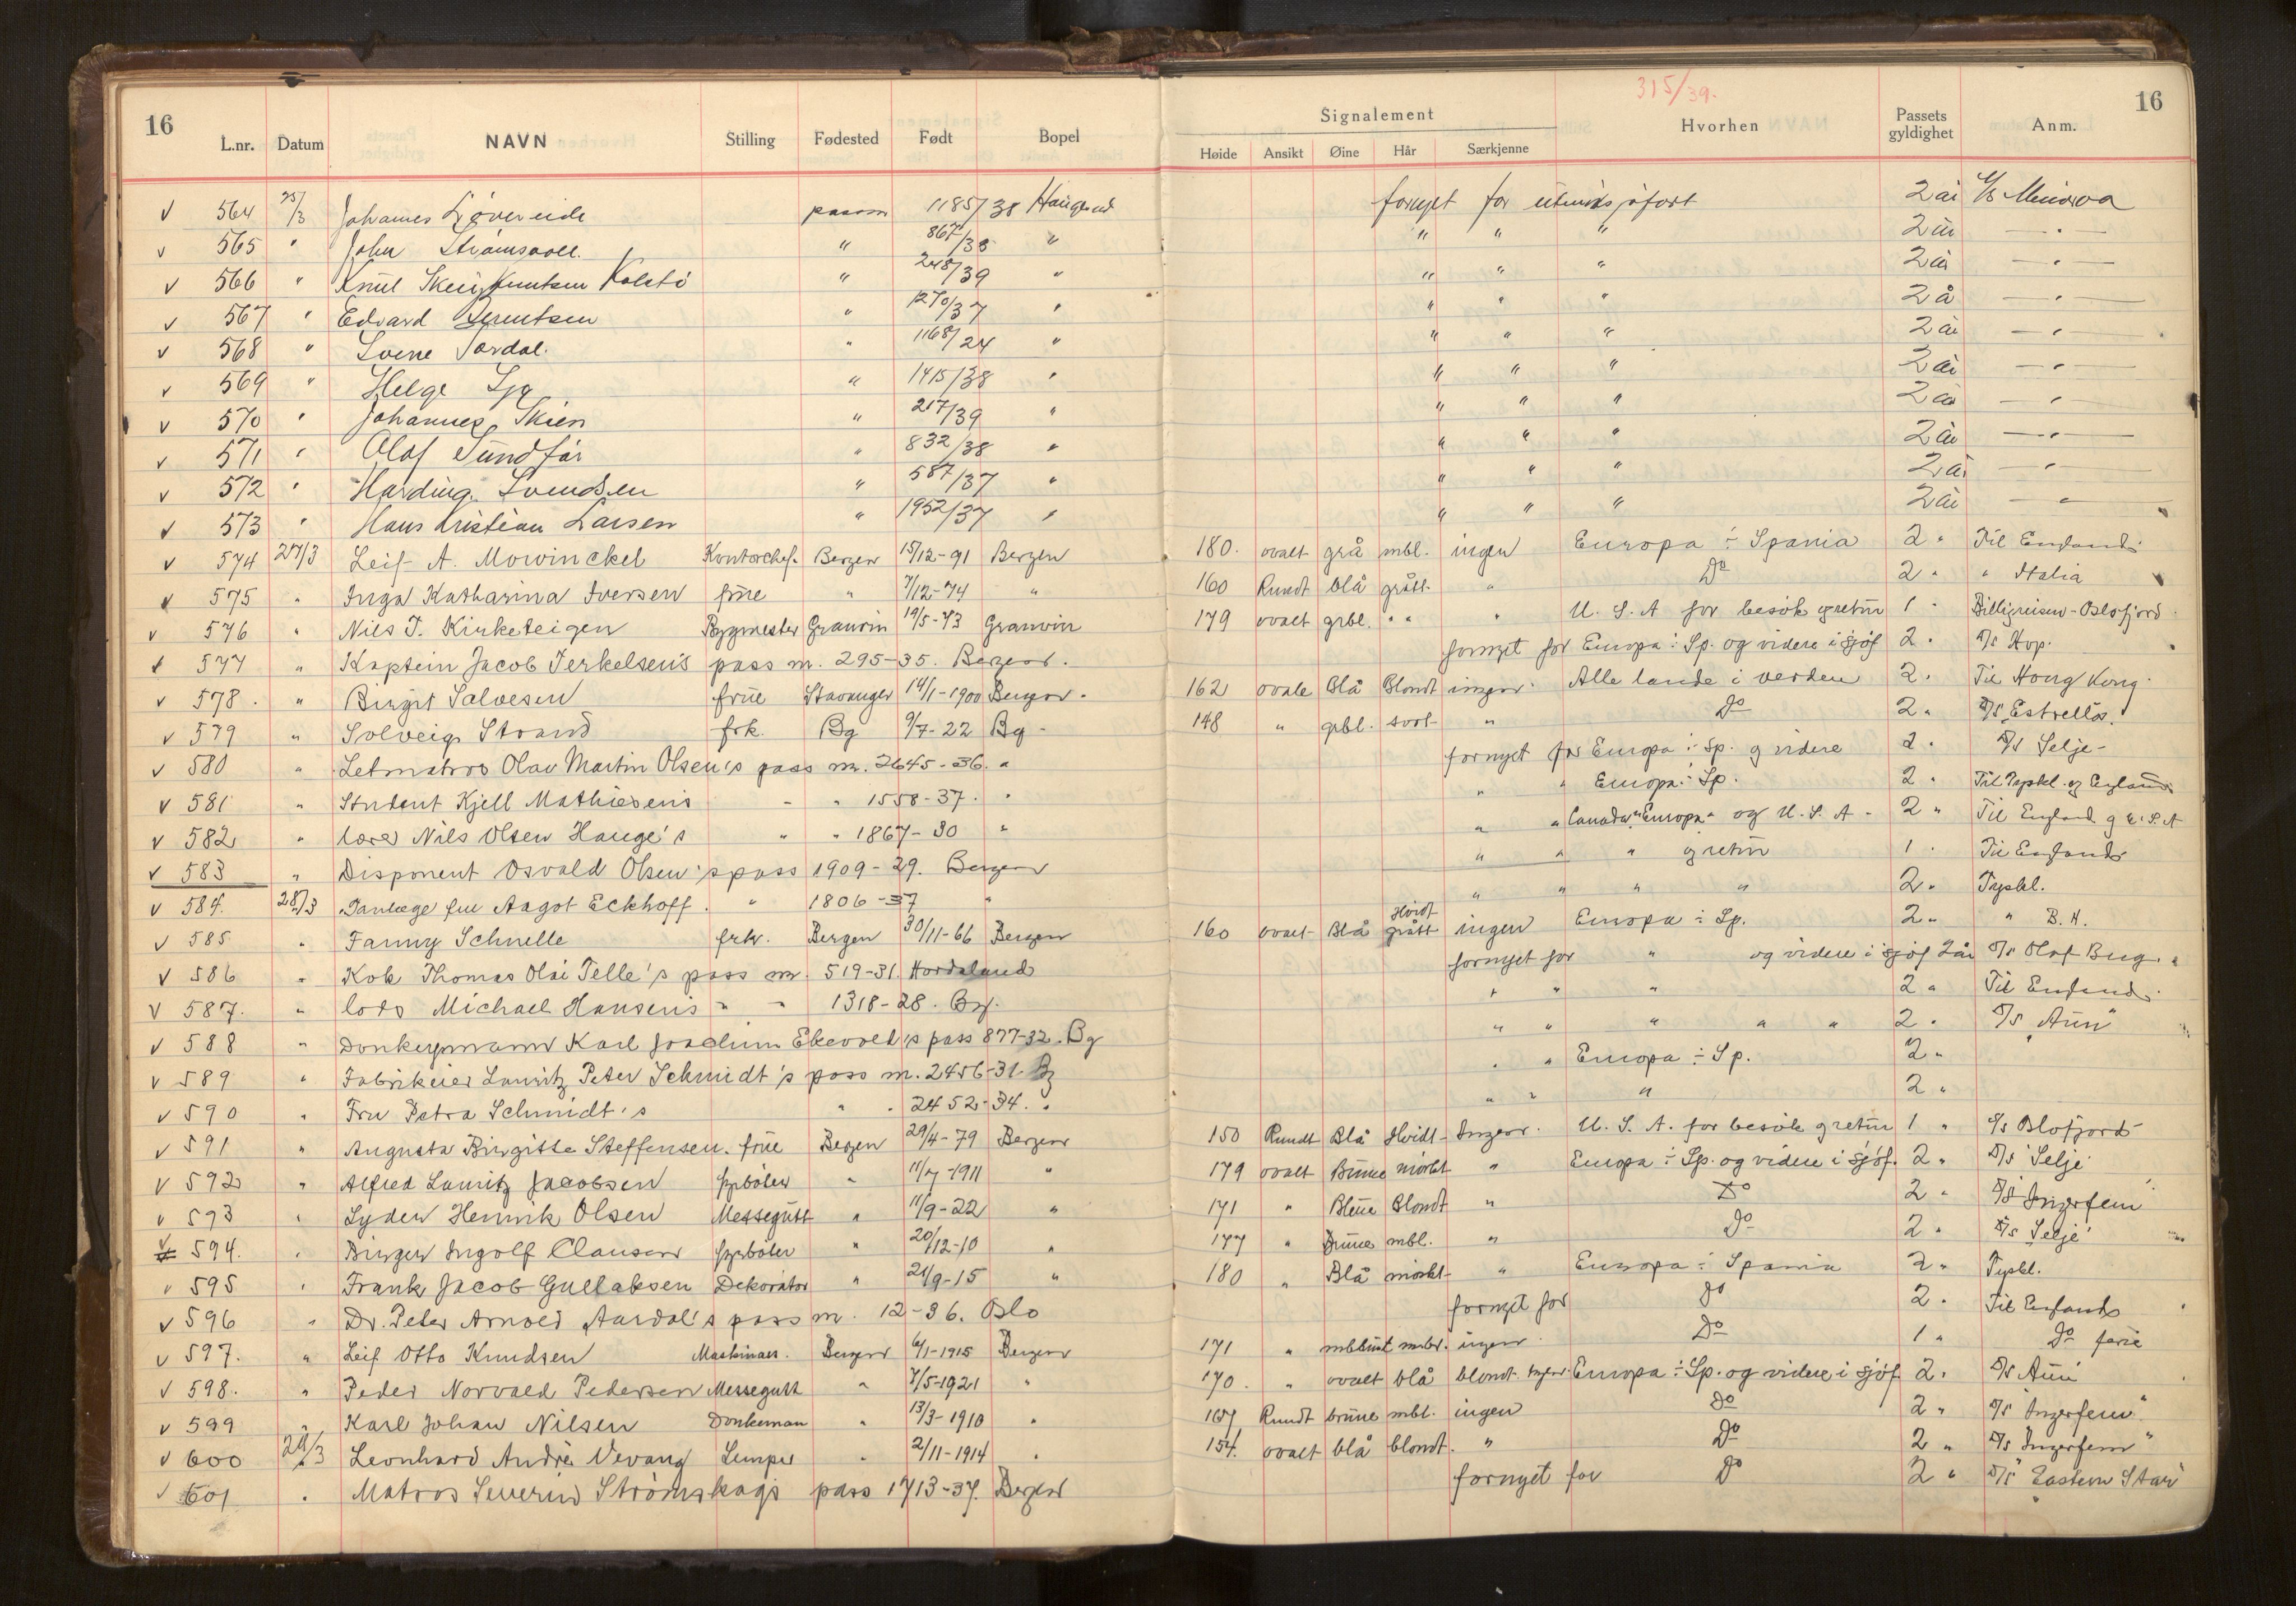 315/39.
16 16
L.nr. Datum NAVN Stilling Fødested Født Bopel Signalement Høide Ansikt Øine Hår Særkjenne Hvorhen Passets gyldighet Anm.
v 564 25/3 Johannes passnr 1185/38 fornyet for 2 år
v 565 " John " 867/38 " " " " 2 år — " —
v 566 " Knut Knutsen Kolstö " 248/39 " " " " 2 år — " —
v 567 " Edvard Berentsen " 1270/37 " " " " 2 å — " —
v 568 " Sverre " 1168/24 " " " " 2 år — " —
v 569 " Helge " 1415/38 " " " " 2 år — " —
v 570 " Johannes Skien " 217/39 " " " " 2 år — " —
v 571 " Olaf Sundfär " 832/38 " " " " 2 år — " —
v 572 " Harding Svendsen " 587/37 " " " " 2 år — " —
v 573 " Hans Kristian Larsen " 1952/37 " " " " 2 år — " —
v 574 27/3 Leif A. Mowinckel Kontorchef. Bergen 15/12-91 Bergen 180. ovalt grå mbl. ingen Europa ÷ Spania 2 " Til England
v 575 " Inga Katharina Iversen frue " 7/12-74 " 160 Rundt blå grått " Do 2 " " Italia
v 576 " Nils T. Kirketeigen Bygmester Granvin 19/5-73 Granvin 179 ovalt grbl. " " " U.S.A for besök g retur 1 " Billigreisen - Oslofjord
v 577 " Kaptein Jacob Terkelsen's pass nr. 295-35. Bergen. fornyet for Europa ÷ Sp. og videre i sjöf 2 " D/S Hop.
v 578. " Birgit Salvesen frue Stavanger 14/1-1900 Bergen. 162 ovale Blå Blondt ingen Alle lande i verden 2 " Til Hong Kong
v 579 " Solveig Strand frk. Bg 9/7-22 Bg 148 " grbl. sort " Do 2 " D/S Estrella.
v 580 " Letmatros Olav Martin Olsen's pass nr. 2645-36. " fornyet for Europa ÷ Sp. g videre 2 " D/S Selje
v 581 " Student Kjell Mathiesen's " " 1558-37. " " " Europa ÷ Sp. 2 " Til Tyskl. og England
v 582 " lærer Nils Olsen Hauge's " " 1867-30 " " " Canada "Europa" og U.S.A. 2 " Til England g U.S.A
v 583 " Disponent Osvald Olsen's pass 1909-29. Bergen " " " g retur 1 " Til England
v 584. 28/3 Tanlæge fru Aagot Eckhoff. " 1806-37 " " " " " 2 " Tyskl.
v 585 " Fanny Schnelle frkn. Bergen 30/11-66 Bergen 160 ovalt Blå Hvidt grått ingen Europa ÷ Sp. 2 " " B.H.
v 586 " Kok Thomas Olai Telle's pass nr. 519-31. Hordaland fornyet for " og videre i sjöf 2 år D/S Olaf Berg.
v 587. " lods Michael Hansen's " " 1318-28. Bg. " " " 2 " Til England
v 588 " Donkeymann Karl Joachim Ekevold's pass 877-32. Bg " " " " " 2 " D/S "Aun"
v 589 " Fabrikeier Lauritz Peter Schmidt's pass nr. 2456-31. Bg " " Europa ÷ Sp. 2 "
v 590 " Fru Petra Schmidt's " " 2452-34. " " " " 2 "
v 591 " Augusta Birgitte Steffensen. frue Bergen 29/4-79 Bergen 150 Rundt Blå Hvidt Ingen. U.S.A. for besök g retur 1 " S/S Oslofjord
v 592 " Alfred Lauritz Jacobsen fyrböter " 11/7-1911 " 179 ovalt Brune mörkt " Europa ÷ Sp. og videre i sjöf. 2 " D/S Selje
v 593 " Lyder Henrik Olsen Messegutt " 11/9-22 " 171 " Blaue Blondt " Do 2 " D/S Ingerfem
v 594. " Birger Ingolf Clausen fyrböter " 20/12-10 " 177 " Brune mbl. " Do 2 " D/S Selje
v 595 " Frank Jacob Gullaksen Dekoratör " 21/9-15 " 180 " Blå mörkt " Europa ÷ Spania 2 " Tyskl.
v 596 " Dr. Peter Arnold Aardal's pass nr. 12-36. Oslo fornyet for Do 2 " Til England
v 597. " Leif Otto Knudsen Maskinass. Bergen 6/1-1915 Bergen 171 " ingen Do 1 " Do
v 598. " Peder Norvald Pedersen Messegutt " 7/5-1921 " 170. " ovalt blå blondt ingen Europa ÷ Sp. og videre i sjöf 2 " D/S Aun
v 599 " Karl Johan Nilsen Donkeman " 13/3-1910 " 167 Rundt brune mbl. ingen Do 2 " D/S Ingerfem"
v 600 29/3 Leonhard Andre Vevang Lemper " 2/11-1914 " 154. ovalt blå blondt. " Do 2 " D/S Ingerfem"
v 601 " Matros Severin Strömskags pass 1713-37. Bergen fornyet for Do 2 " D/S Eastern Star